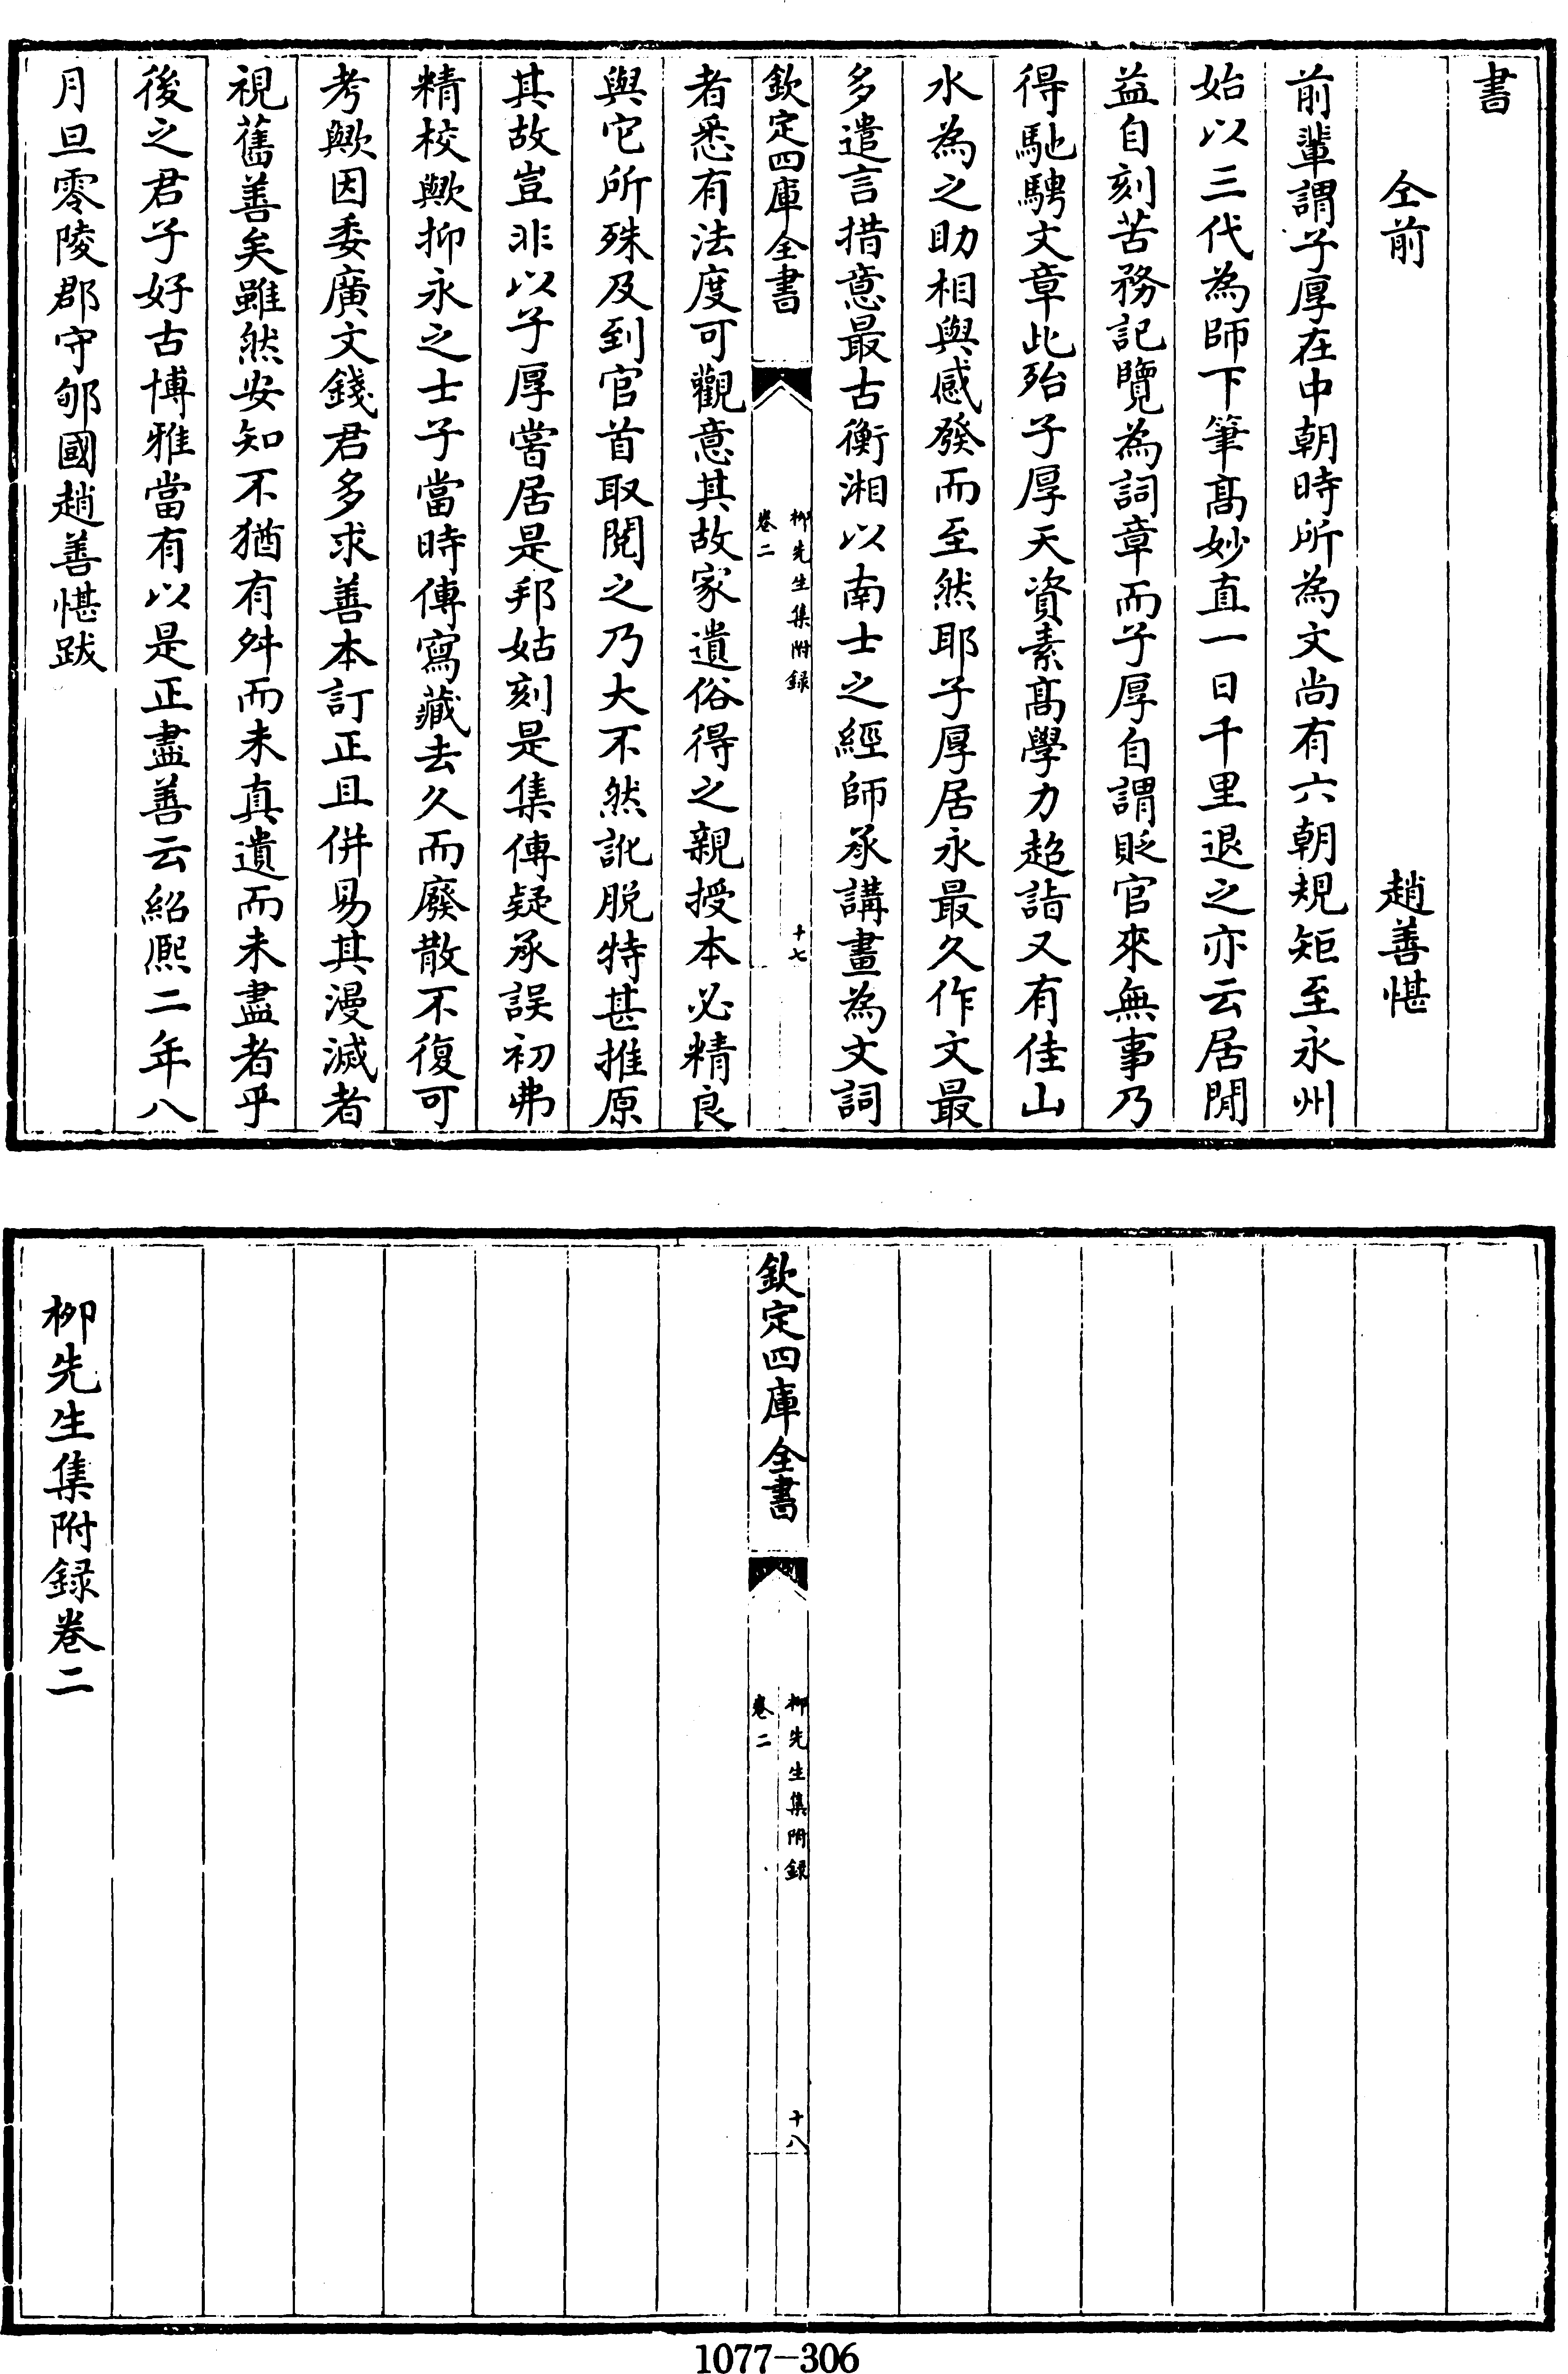 書
仝前　趙善愖
前輩謂子厚在中朝時所為文尚有六朝規矩至永州
始以三代為師下筆髙妙直一日千里退之亦云居閒
益自刻苦務記覽為詞章而子厚自謂貶官來無事乃
得馳騁文章此殆子厚天資素髙學力超詣又有佳山
水為之助相與感發而至然耶子厚居永最久作文最
多遣言措意最古衡湘以南士之經師承講畫為文詞
欽定四庫全書
柳先生集附録
卷二
十七
者悉有法度可觀意其故家遺俗得之親授本必精良
與它所殊及到官首取閱之乃大不然訛脱特甚推原
其故豈非以子厚嘗居是邦姑刻是集傳疑承誤初弗
精校歟抑永之士子當時傳寫藏去久而廢散不復可
考歟因委廣文錢君多求善本訂正且併易其漫滅者
視舊善矣雖然安知不猶有舛而未真遺而未盡者乎
後之君子好古博雅當有以是正盡善云紹熈二年八
月旦零陵郡守郇國趙善愖跋
欽定四庫全書
柳先生集附録
卷二
十八
柳先生集附録卷二
1077-306